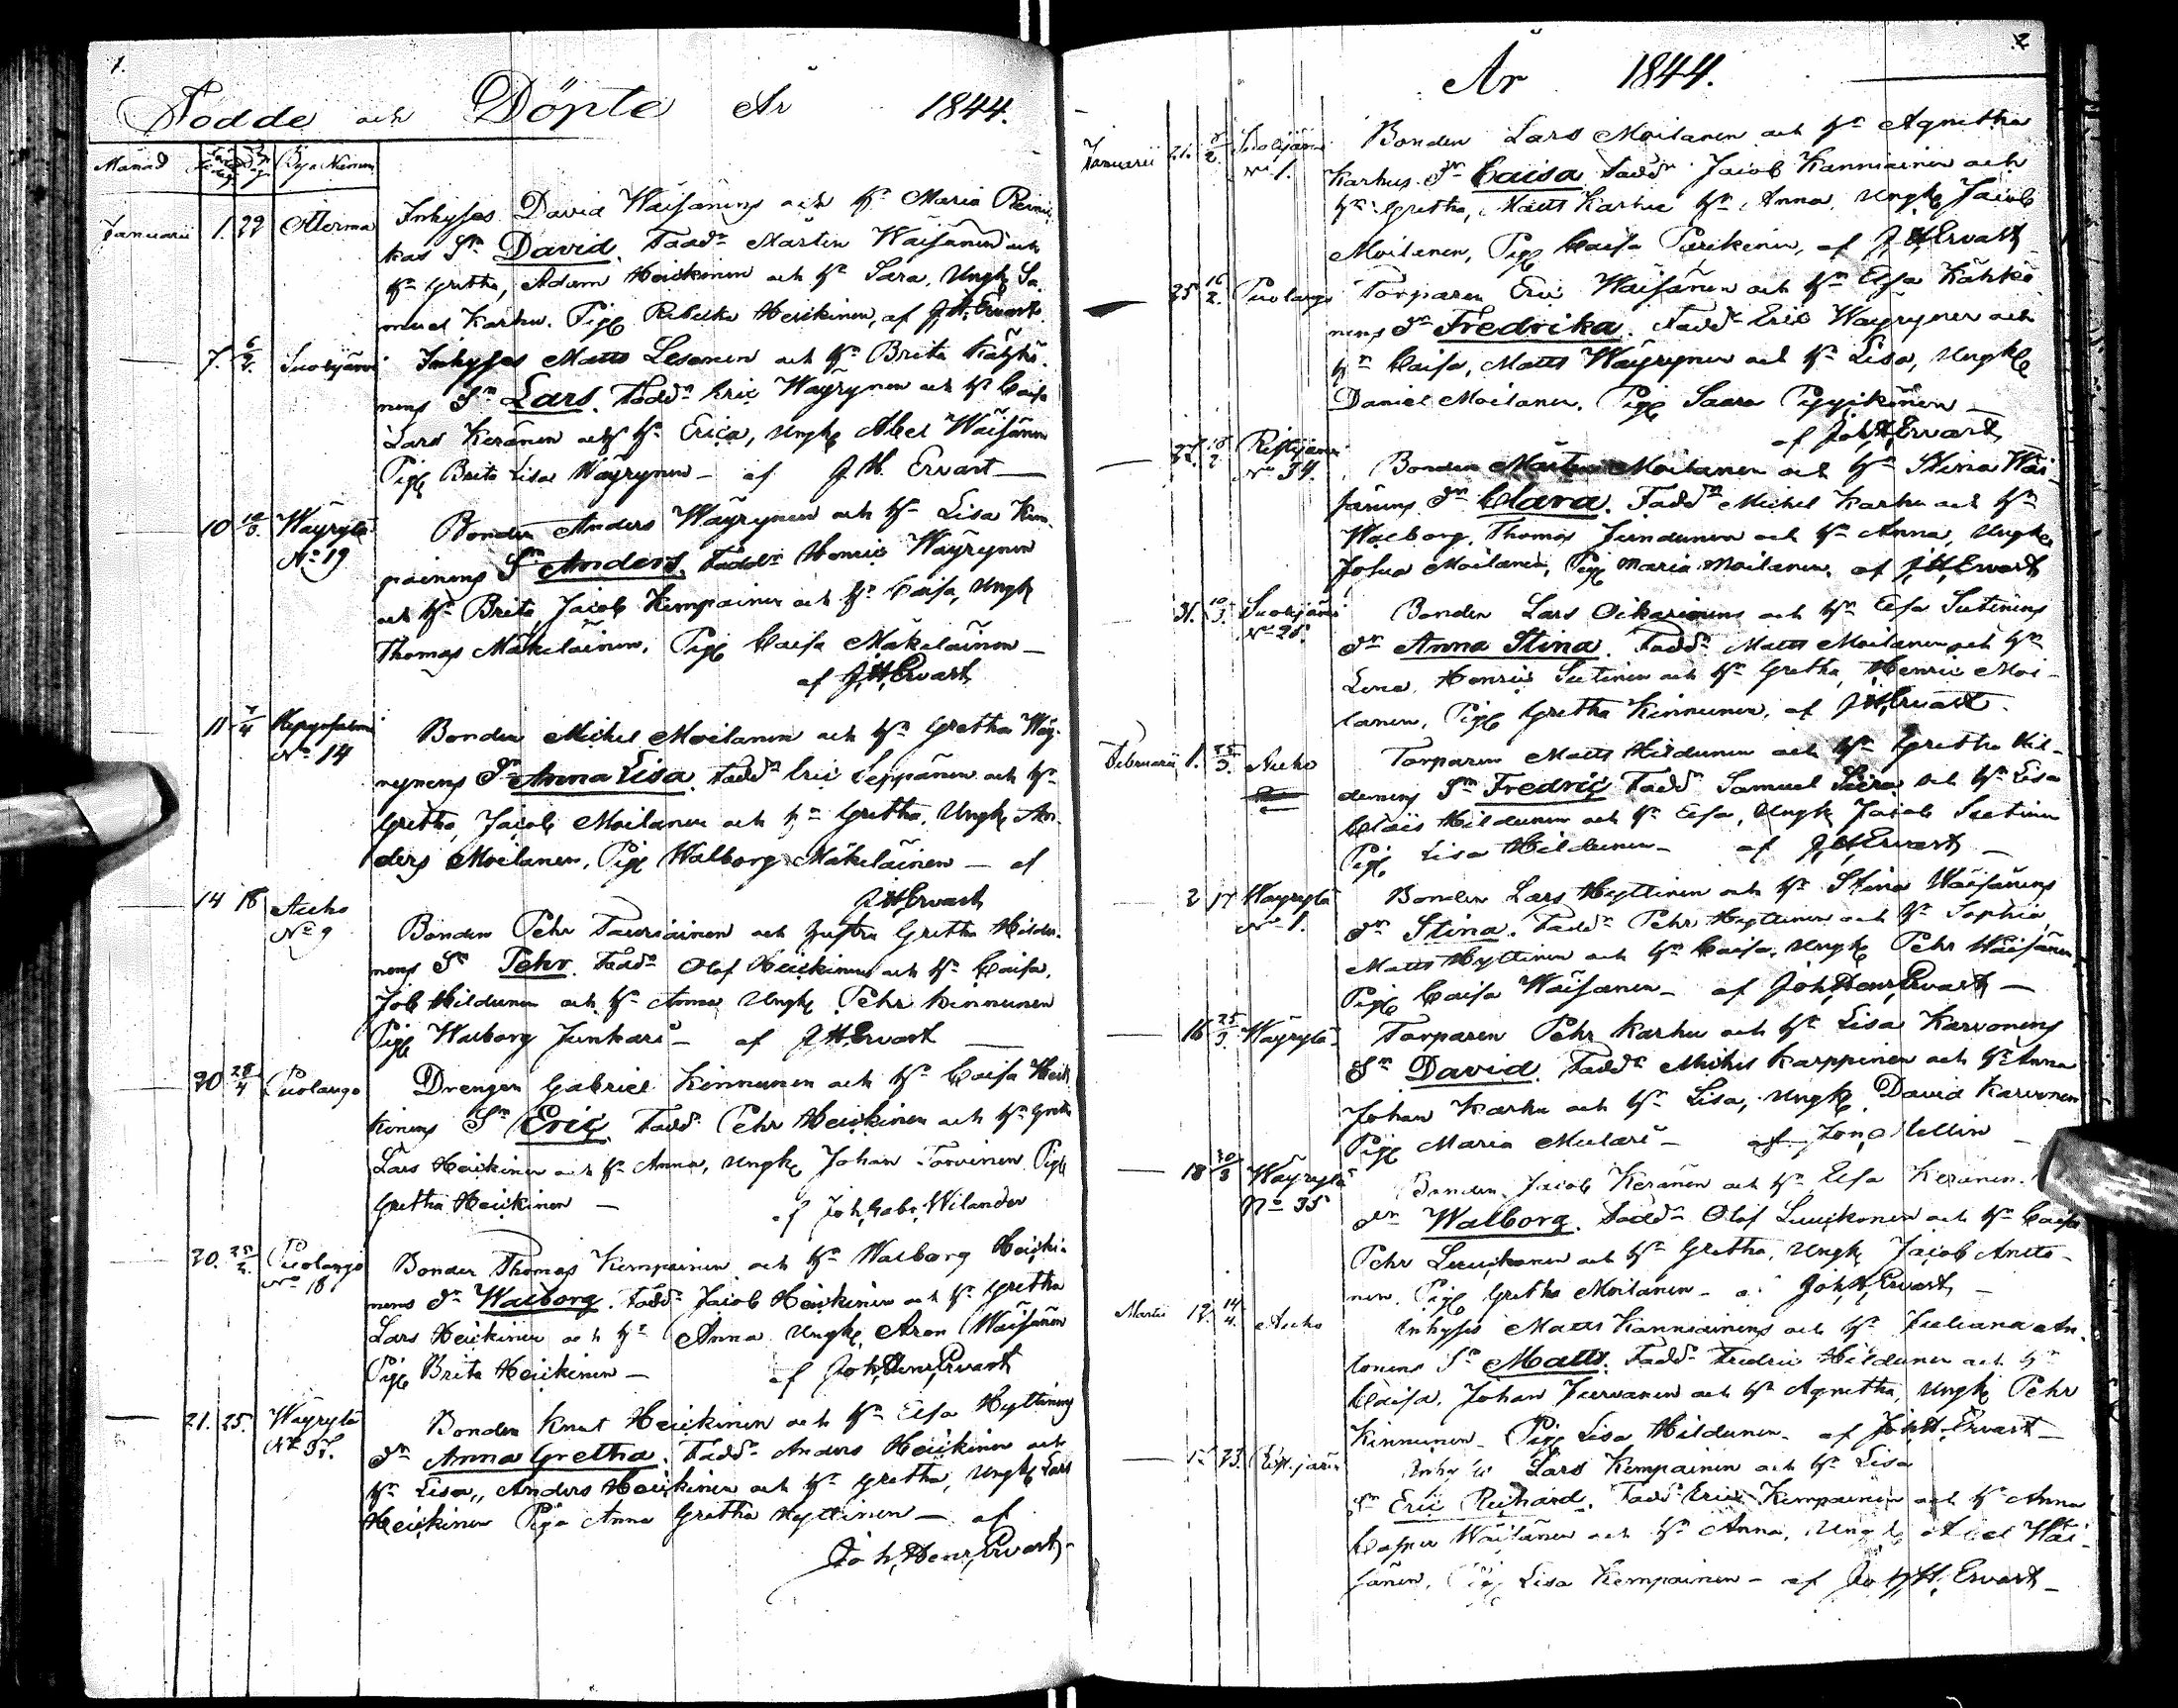 1.
Födde och Döpte År 1844.
Månad Födelse dag Dop dag Bya Namn
Januarii 1. 29 Aterma Inhyses David Wäisänens och h:u Maria Reini-
kas S:n David. Fadd:r Mårten Wäisänen och
h:u Gretha, Adam Heickinen och h:u Sara, Ungk Sa-
muel Karhu. Pig Rebecka Heikinen, af J.H. Ervast
7. Suolijärvi Inhyses Matts Lesonen och h:u Brita Kähkö-
nens S:n Lars. Fadd:r Eric Wäyrynen och h:u Caisa
Lars Keränen och h:u Erica, Ungk Abel Wäisänen
Pig Brita Lisa Wäyrynen – af J.H. Ervast –
10 10/3. Wäyrylä Bonden Anders Wäyrynen och h:u Lisa Kem-
No 19 painens S:n Anders. Fadd:r Henric Wäyrynen
och h:u Brita, Jacob Kempainen och h:u Caisa, Ungk
Thomas Mäkeläinen, Pig Caisa Mäkeläinen –
af J.H. Ervast
11 Bonden Michel Moilanen och h:u Gretha Wäy-
No 14 rynens D:r Anna Lisa. Fadd:r Eric Seppänen och h:u
Gretha, Jacob Moilanen och h:u Gretha, Ungk An-
ders Moilanen, Pig Walborg Mäkeläinen – af
J.H. Ervast
14 18 Aucho
No 9 Bonden Pehr Tauriainen och hustru Gretha Hildu-
nens S:n Pehr. Fadd:r Olof Heickinen och h:u Caisa,
Job Hildunen och h:u Anna Ungk Pehr Kinnunen
Pig Walborg Junkari – af J.H. Ervast –
20 28/4 Puolango Drengen Gabriel Kinnunen och h:u Caisa Heic-
kinens S:n Eric. Fadd:r Pehr Heickinen och h:u Greta
Lars Heickinen och h:u Anna, Ungk Johan Torvinen Pig
Gretha Heickinen – af Joh. Gabr. Wilander
20. 25/2. Puolango Bonden Thomas Kempainen och h:u Walborg Heicki-
No 18 nens D:r Walborg. Fadd:r Jacob Heickinen och h:u Gretha
Lars Heickinen och h:u Anna Ungk Aron Wäisänen
Pig Brita Heickinen – af Joh. Henr. Ervast
21. 25. Wäyrylä Bonden Knut Heickinen och h:u Elsa Hyttinens
No 37. D:r Anna Gretha. Fadd:r Anders Heickinen och
h:u Lisa, Anders Heickinen och h:u Gretha, Ungk Lars
Heickinen Piga Anna Gretha Hyttinen – af
Joh. Henr. Ervast
2
År 1844.
Januarii 21. Suolijärvi Bonden Lars Moilanen och h:u Agnetha
No 1. Karhus D:r Caisa. Fadd:r Jacob Kanniainen och
h:u Gretha, Matts Karhu h:u Anna, Ungk Jacob
Moilanen, Pig Caisa Purikinen, af J.H. Ervast
25 16/2. Puolango Torparen Eric Wäisänen och h:u Elsa Kähkö-
nens D:r Fredrika. Fadd:r Eric Wäyrynen och
h:u Caisa, Matts Wäyrynen och h:u Lisa, Ungk
Daniel Moilanen. Pig Saara Pyykönen –
af Joh. H. Ervast
Ristijärvi
No 34. Bonden Mårten Moilanen och h:u Stina Wäi-
sänens D:r Clara. Fadd:r Michel Karhu och h:u
Walborg, Thomas Jundunen och h:u Anna, Ungk
Josua Moilanen, Pig Maria Moilanen. af J.H. Ervast
31. 10/3. Suolijärvi Bonden Lars Oikarinens och h:u Elsa Sutinens
No 25. D:r Anna Stina. Fadd:r Matts Moilanen och h:u
Lena, Henric Sutinen och h:u Gretha, Henric Moi-
lanen, Pig Gretha Kinnunen, af J.H. Ervast
Februarii 1. Aucho Torparen Matts Hildunen och h:u Gretha Hil-
dunens S:n Fredric Fadd:r Samuel Siera och h:u Lisa
Hildunen och h:u Elsa, Ungk Jacob Suttinen
Pig Lisa Hildunen – af J.H. Ervast –
2 17 Wäyrylä Bonden Lars Hyttinen och h:u Stina Wäisänens
No 1. D:r Stina. Fadd:r Pehr Hyttinen och h:u Sophia,
Matts Hyttinen och h:u Caisa, Ungk Pehr Wäisänen,
Pig Caisa Wäisänen – af Joh. Henr. Ervast –
16 25/3 Wäyrylä Torparen Pehr Karhu och h:u Lisa Karvonens
S:n David. Fadd:r Michel Karppinen och h:u Anna
Johan Karhu och h:u Lisa, Ungk David Karvonen
Pig Maria Mulari – af Jon. Mellin –
18 20/3 Wäyrylä Bonden Jacob Keränen och h:u Elsa Keränen.
No 35 D:r Walborg. Fadd:r Olof Luuckonen och h:u Caisa
Pehr Luuckonen och h:u Gretha, Ungk Jacob Antto-
nen, Pig Gretha Moilanen – Joh. H. Ervast –
Martii 12. 14/4. Aucho Inhyses Matts Kanniainens och h:u Juliana An-
tonens S:n Matts. Fadd:r Fredric Hildunen och h:u
Caisa, Johan Juvanen och h:u Agnetha, Ungk Pehr
Kinnunen – Pig Lisa Hildunen. af Joh. H. Ervast –
23. Lars Kempainen och h:u Lisa
S:n Eric Richard. Fadd:r Eric Kempainen och h:u Anna
Casper Wäisänen och h:u Anna, Ungk Abel Wäi-
sänen, Pig Lisa Kempainen – af Joh. H. Ervast –